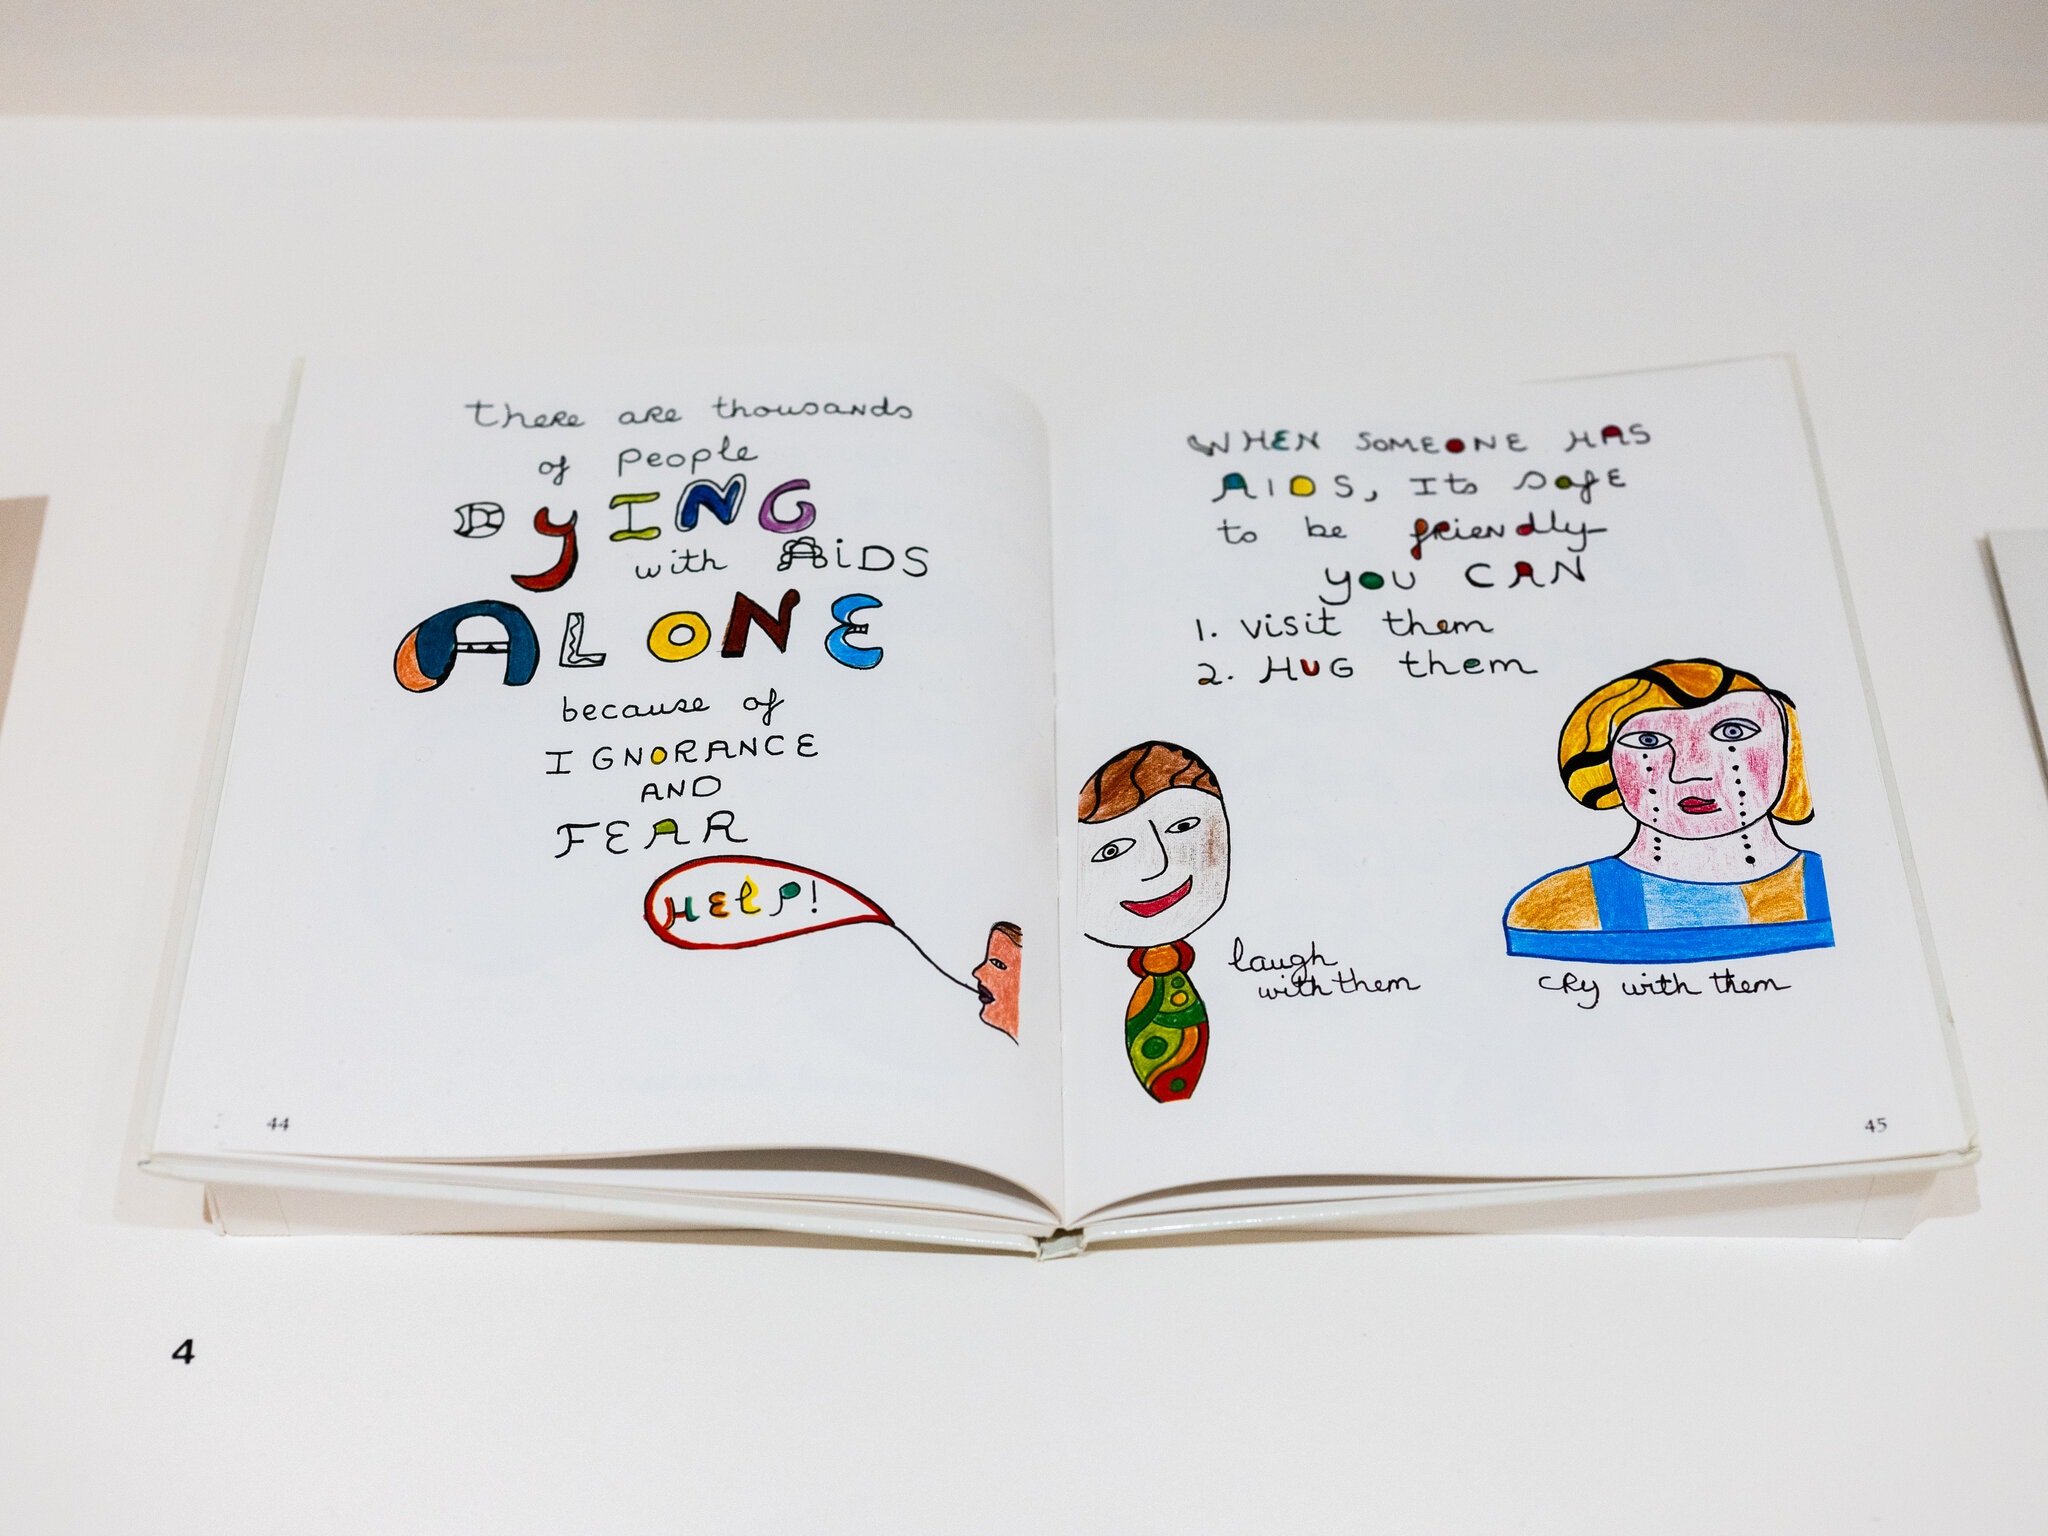 there are thousands
of people
DYING
with AiDS
ALONE
because of
IGNORANCE
AND
FEAR
HElP!
44
WHEN SOMEONE HAS
AIDS, Its safe
to be friendly
you CAN
1. visit them
2. HUG them
laugh
with them
cRy with them
45
4